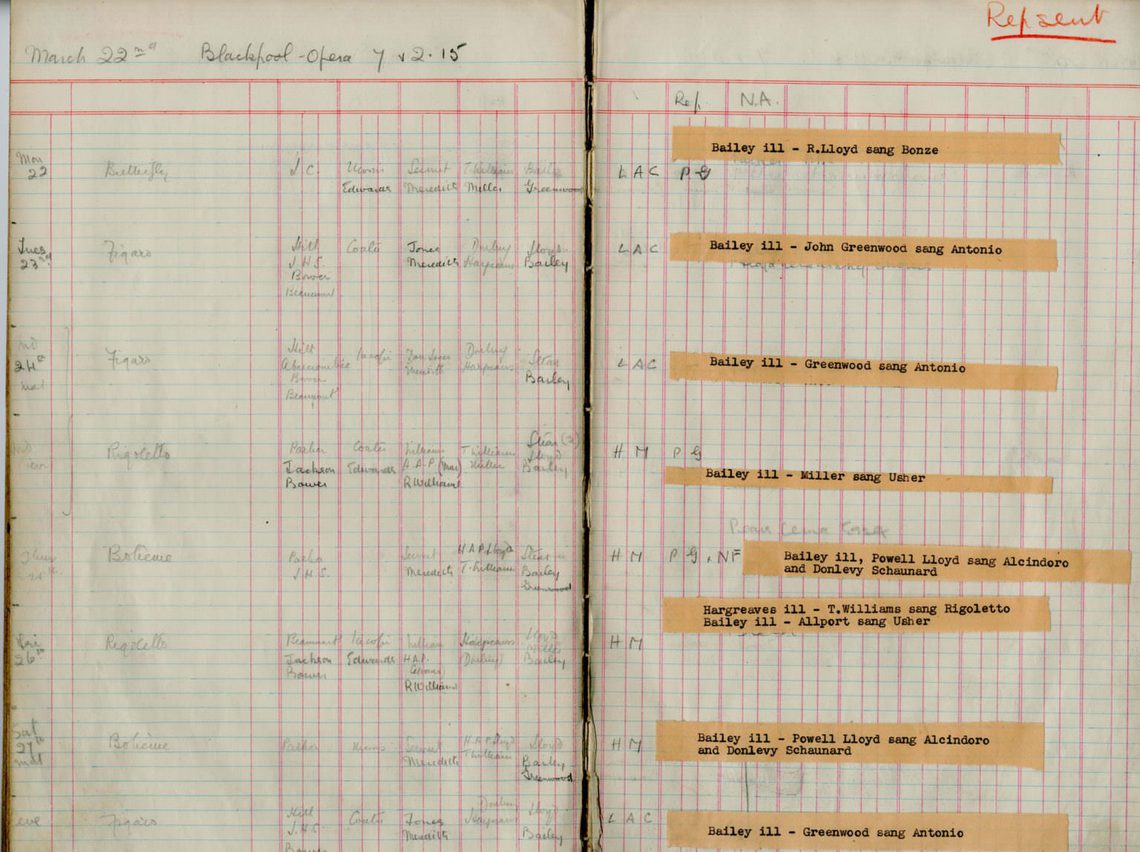 Rep sent
March 22nd Blackpool - Opera 7 v 2.15
Rep. N.A.
Bailey ill - R.Lloyd sang Bonze
Mon Butterfly J.C. T. Williams Bailey L A C P G
22 Edwards Meredith Miller Greenwood
Tues Figaro Hill Coates Jones Darling Lloyd L A C Bailey ill - John Greenwood sang Antonio
23rd J.H.S. Meredith Hargreaves Bailey
Bower
Beaumont
Figaro Hill Iacopi Darling Stear L A C Bailey ill - Greenwood sang Antonio
24th Abercrombie Meredith Hargreaves
mat Bower Bailey
Beaumont
Stear
Rigoletto Parker Coates Williams T Williams Lloyd H M P G
Jackson Edwards Bailey Bailey ill - Miller sang Usher
Bower R Williams
Thurs Boheme H A P Lloyd Stear H M P G . NF Bailey ill, Powell Lloyd sang Alcindoro
J.H.S. Meredith T. Williams Bailey and Donlevy Schaunard
Greenwood
Hargreaves ill - T.Williams sang Rigoletto
Bailey ill - Allport sang Usher
Fri Rigoletto Beaumont Iacopi Williams Hargreaves Lloyd H M
26th Jackson Edwards H.A.P. Darling Bailey
Bower
R Williams
Sat
27th Boheme H A P Lloyd Lloyd H M Bailey ill - Powell Lloyd sang Alcindoro
mat Meredith T Williams Bailey and Donlevy Schaunard
Greenwood
eve Figaro Hill Coates Jones Darling Lloyd L A C
J.H.S. Meredith Hargreaves Bailey Bailey ill - Greenwood sang Antonio
Bower